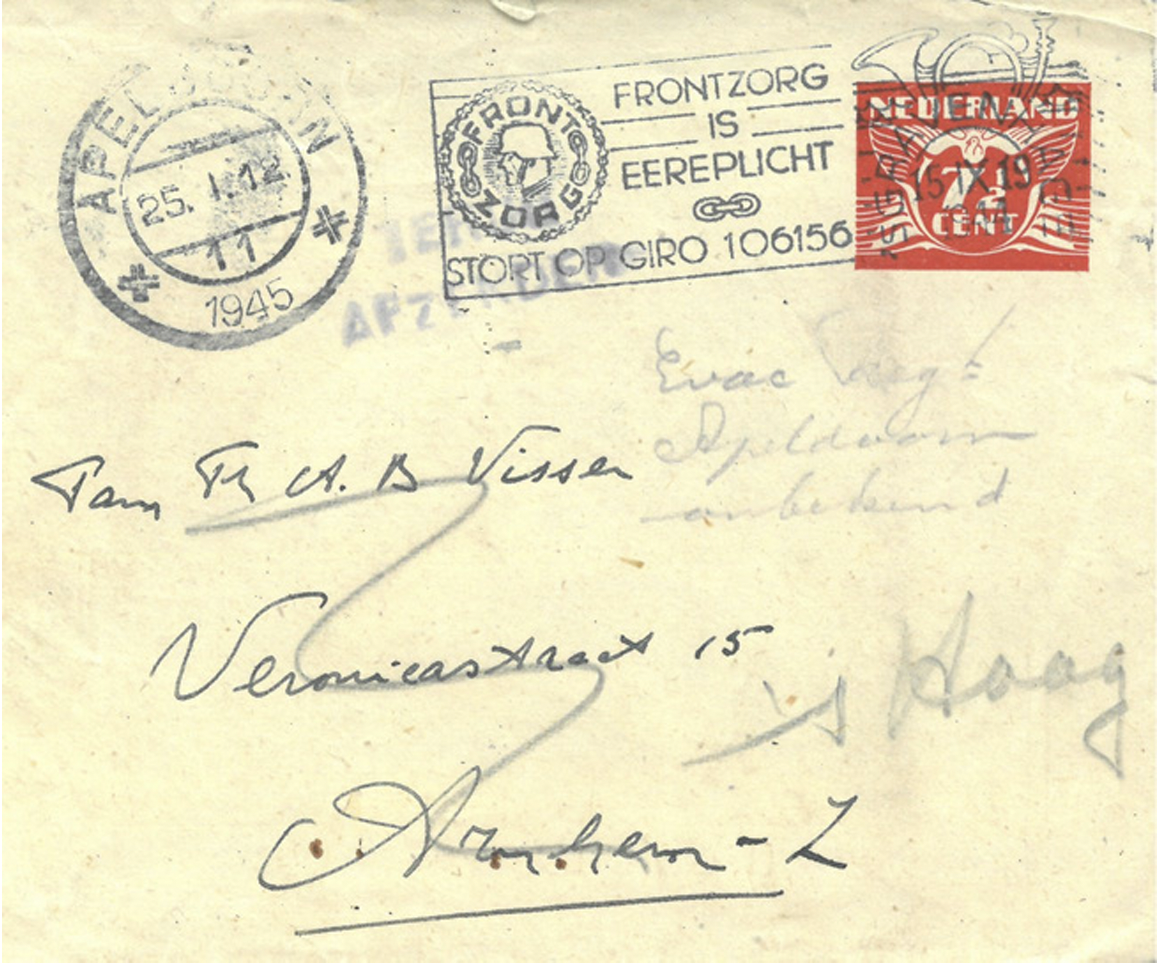 APELDOORN
25. I. 12
11
1945
FRONT
ZORG
FRONTZORG
IS
EEREPLICHT
STORT OP GIRO 106156
NEDERLAND
7½
CENT
15 IX 19
AFZENDER
Evac
Apeldoorn
onbekend
Fam Th A. B Visser
Veronicastraat 15
's Haag
Arnhem - Z